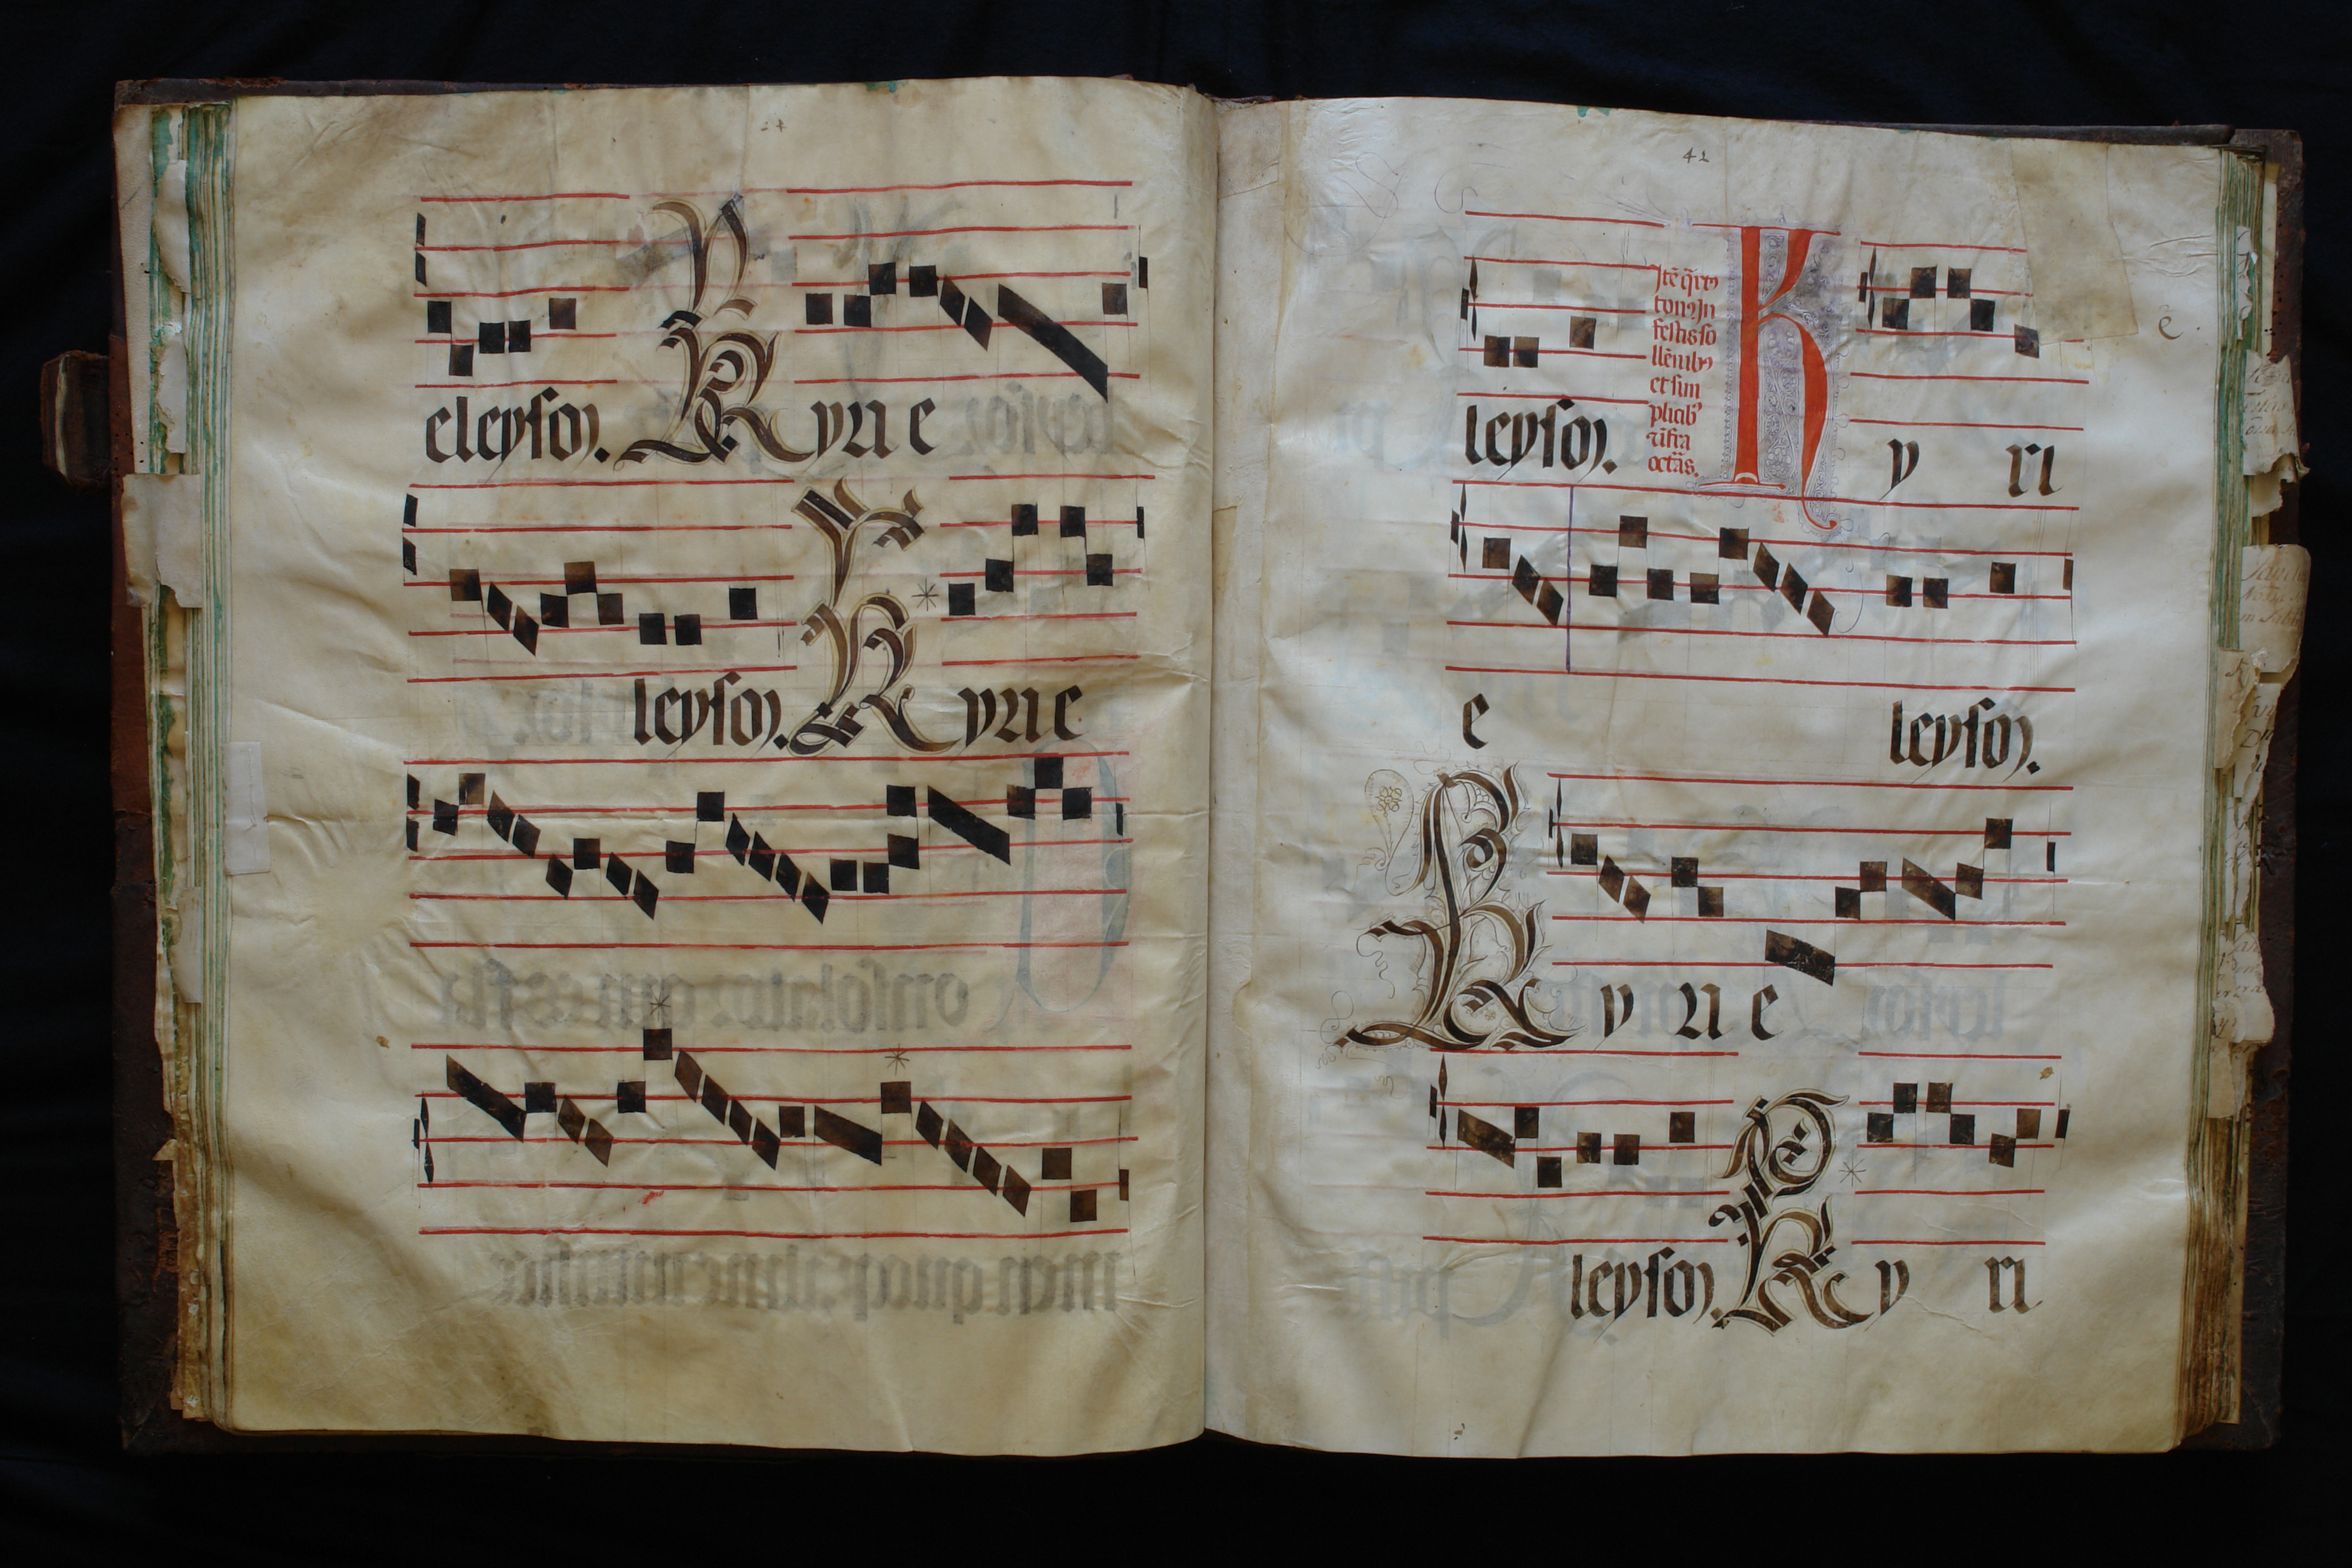 eleyson. Kyrie
leyson. Kyrie
42
Itē q̄rtꝰ
tonꝰ In
festis so
llēnibꝰ
et sim
plicibꝰ
īfra
octās.
leyson. K y ri
e leyson.
K y ri e
leyson. K y ri